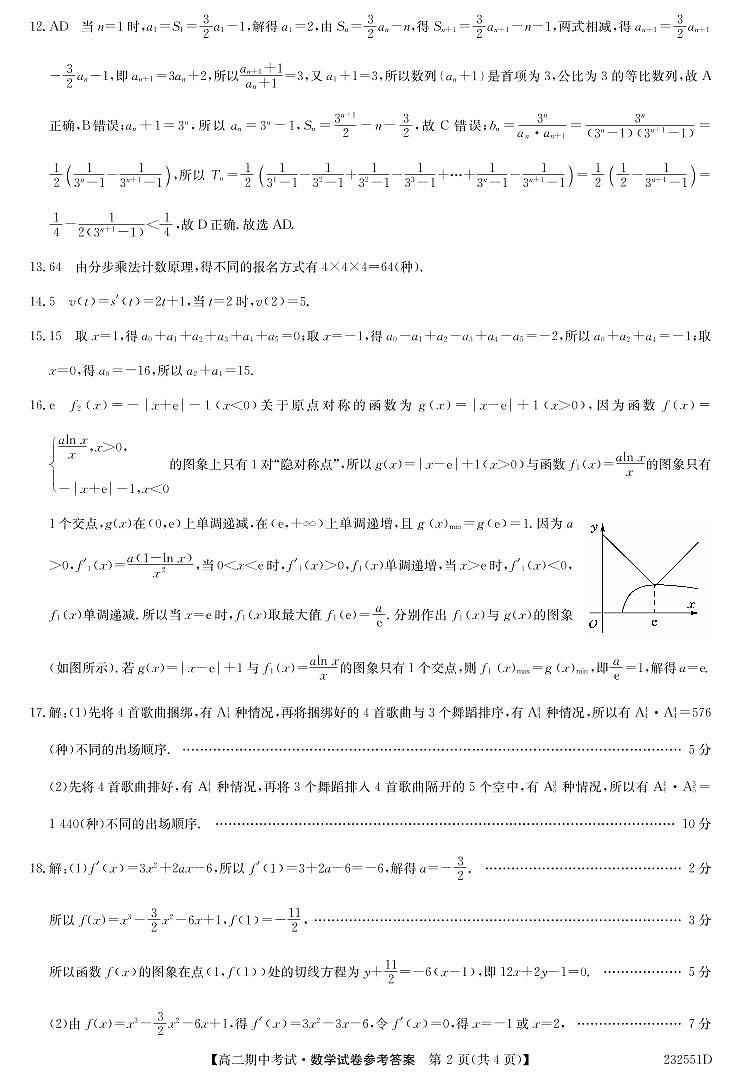 12. AD　当 n=1 时,a₁=S₁=3/2 a₁-1,解得 a₁=2,由 Sₙ=3/2 aₙ-n,得 Sₙ₊₁=3/2 aₙ₊₁-n-1,两式相减,得 aₙ₊₁=3/2 aₙ₊₁
-3/2 aₙ-1,即 aₙ₊₁=3aₙ+2,所以 (aₙ₊₁+1)/(aₙ+1)=3,又 a₁+1=3,所以数列{aₙ+1}是首项为 3,公比为 3 的等比数列,故 A
正确,B错误;aₙ+1=3ⁿ,所以 aₙ=3ⁿ-1,Sₙ=3ⁿ⁺¹/2-n-3/2,故 C 错误;bₙ=3ⁿ/(aₙ·aₙ₊₁)=3ⁿ/((3ⁿ-1)(3ⁿ⁺¹-1))=
1/2(1/(3ⁿ-1)-1/(3ⁿ⁺¹-1)),所以 Tₙ=1/2(1/(3¹-1)-1/(3²-1)+1/(3²-1)-1/(3³-1)+…+1/(3ⁿ-1)-1/(3ⁿ⁺¹-1))=1/2(1/2-1/(3ⁿ⁺¹-1))=
1/4-1/(2(3ⁿ⁺¹-1))<1/4,故 D 正确. 故选 AD.
13. 64　由分步乘法计数原理,得不同的报名方式有 4×4×4=64(种).
14. 5　v(t)=s′(t)=2t+1,当 t=2 时,v(2)=5.
15. 15　取 x=1,得 a₀+a₁+a₂+a₃+a₄+a₅=0;取 x=-1,得 a₀-a₁+a₂-a₃+a₄-a₅=-2,所以 a₀+a₂+a₄=-1;取
x=0,得 a₀=-16,所以 a₂+a₄=15.
16. e　f₂(x)=-|x+e|-1(x<0)关于原点对称的函数为 g(x)=|x-e|+1(x>0),因为函数 f(x)=
{aln x/x,x>0,
-|x+e|-1,x<0
的图象上只有 1 对“隐对称点”,所以 g(x)=|x-e|+1(x>0)与函数 f₁(x)=aln x/x的图象只有
1 个交点,g(x)在(0,e)上单调递减,在(e,+∞)上单调递增,且 g(x)min=g(e)=1. 因为 a
>0,f′₁(x)=a(1-ln x)/x²,当 0<x<e 时,f′₁(x)>0,f₁(x)单调递增,当 x>e 时,f′₁(x)<0,
f₁(x)单调递减. 所以当 x=e 时,f₁(x)取最大值 f₁(e)=a/e. 分别作出 f₁(x)与 g(x)的图象
y
O
e
x
(如图所示). 若 g(x)=|x-e|+1 与 f₁(x)=aln x/x的图象只有 1 个交点,则 f₁(x)max=g(x)min,即a/e=1,解得 a=e.
17. 解:(1)先将 4 首歌曲捆绑,有 A₄⁴ 种情况,再将捆绑好的 4 首歌曲与 3 个舞蹈排序,有 A₄⁴ 种情况,所以有 A₄⁴·A₄⁴=576
(种)不同的出场顺序. …… 5 分
(2)先将 4 首歌曲排好,有 A₄⁴ 种情况,再将 3 个舞蹈排入 4 首歌曲隔开的 5 个空中,有 A₅³ 种情况,所以有 A₄⁴·A₅³=
1 440(种)不同的出场顺序. …… 10 分
18. 解:(1)f′(x)=3x²+2ax-6,所以 f′(1)=3+2a-6=-6,解得 a=-3/2. …… 2 分
所以 f(x)=x³-3/2 x²-6x+1,f(1)=-11/2, …… 3 分
所以函数 f(x)的图象在点(1,f(1))处的切线方程为 y+11/2=-6(x-1),即 12x+2y-1=0. …… 5 分
(2)由 f(x)=x³-3/2 x²-6x+1,得 f′(x)=3x²-3x-6,令 f′(x)=0,得 x=-1 或 x=2, …… 7 分
【高二期中考试·数学试卷参考答案　第 2 页(共 4 页)】
232551D